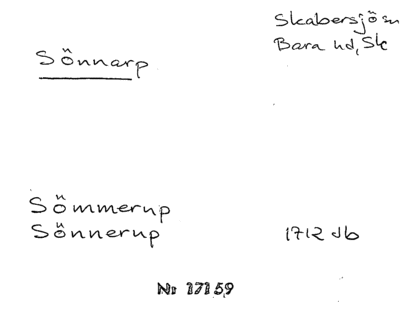 Skabersjö sn
Bara hd, Sk
Sönnarp
Sömmerup
Sönnerup 1712 Jb
Nr 17159